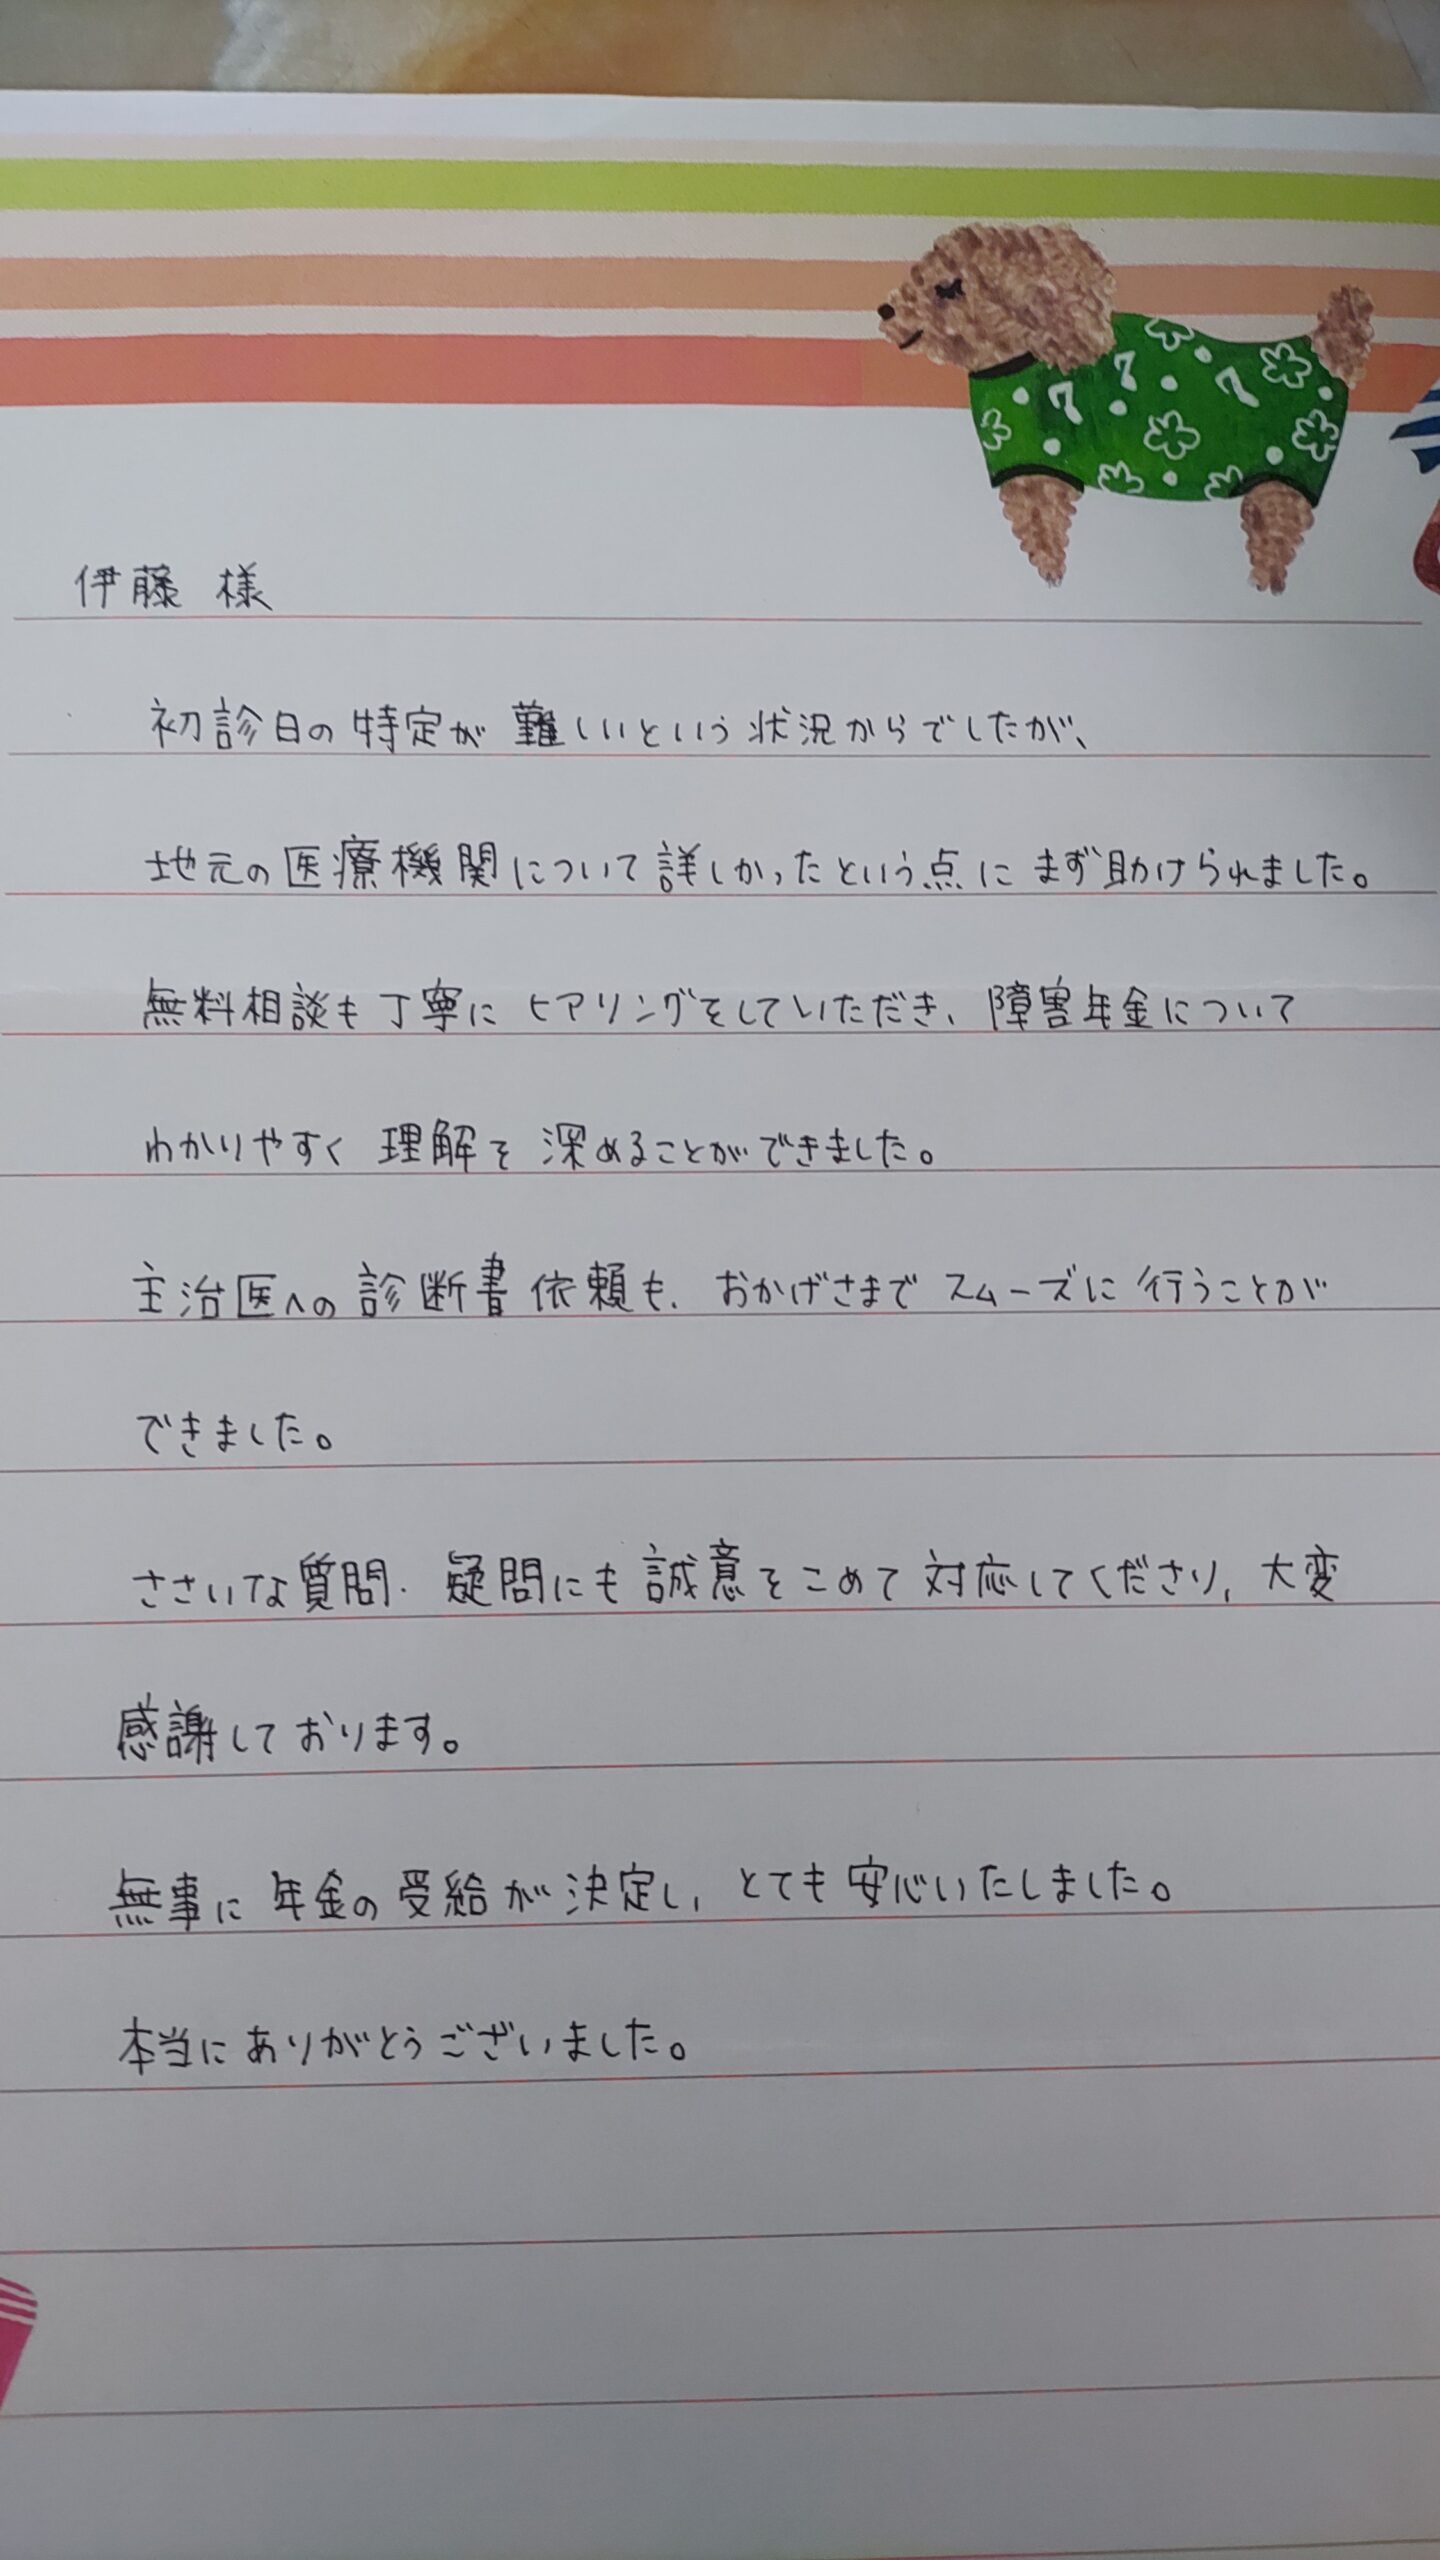 伊藤 様
初診日の特定が難しいという状況からでしたが、
地元の医療機関について詳しかったという点にまず助けられました。
無料相談も丁寧にヒアリングをしていただき、障害年金について
わかりやすく理解を深めることができました。
主治医への診断書依頼も、おかげさまでスムーズに行うことが
できました。
ささいな質問・疑問にも誠意をこめて対応してくださり、大変
感謝しております。
無事に年金の受給が決定し、とても安心いたしました。
本当にありがとうございました。